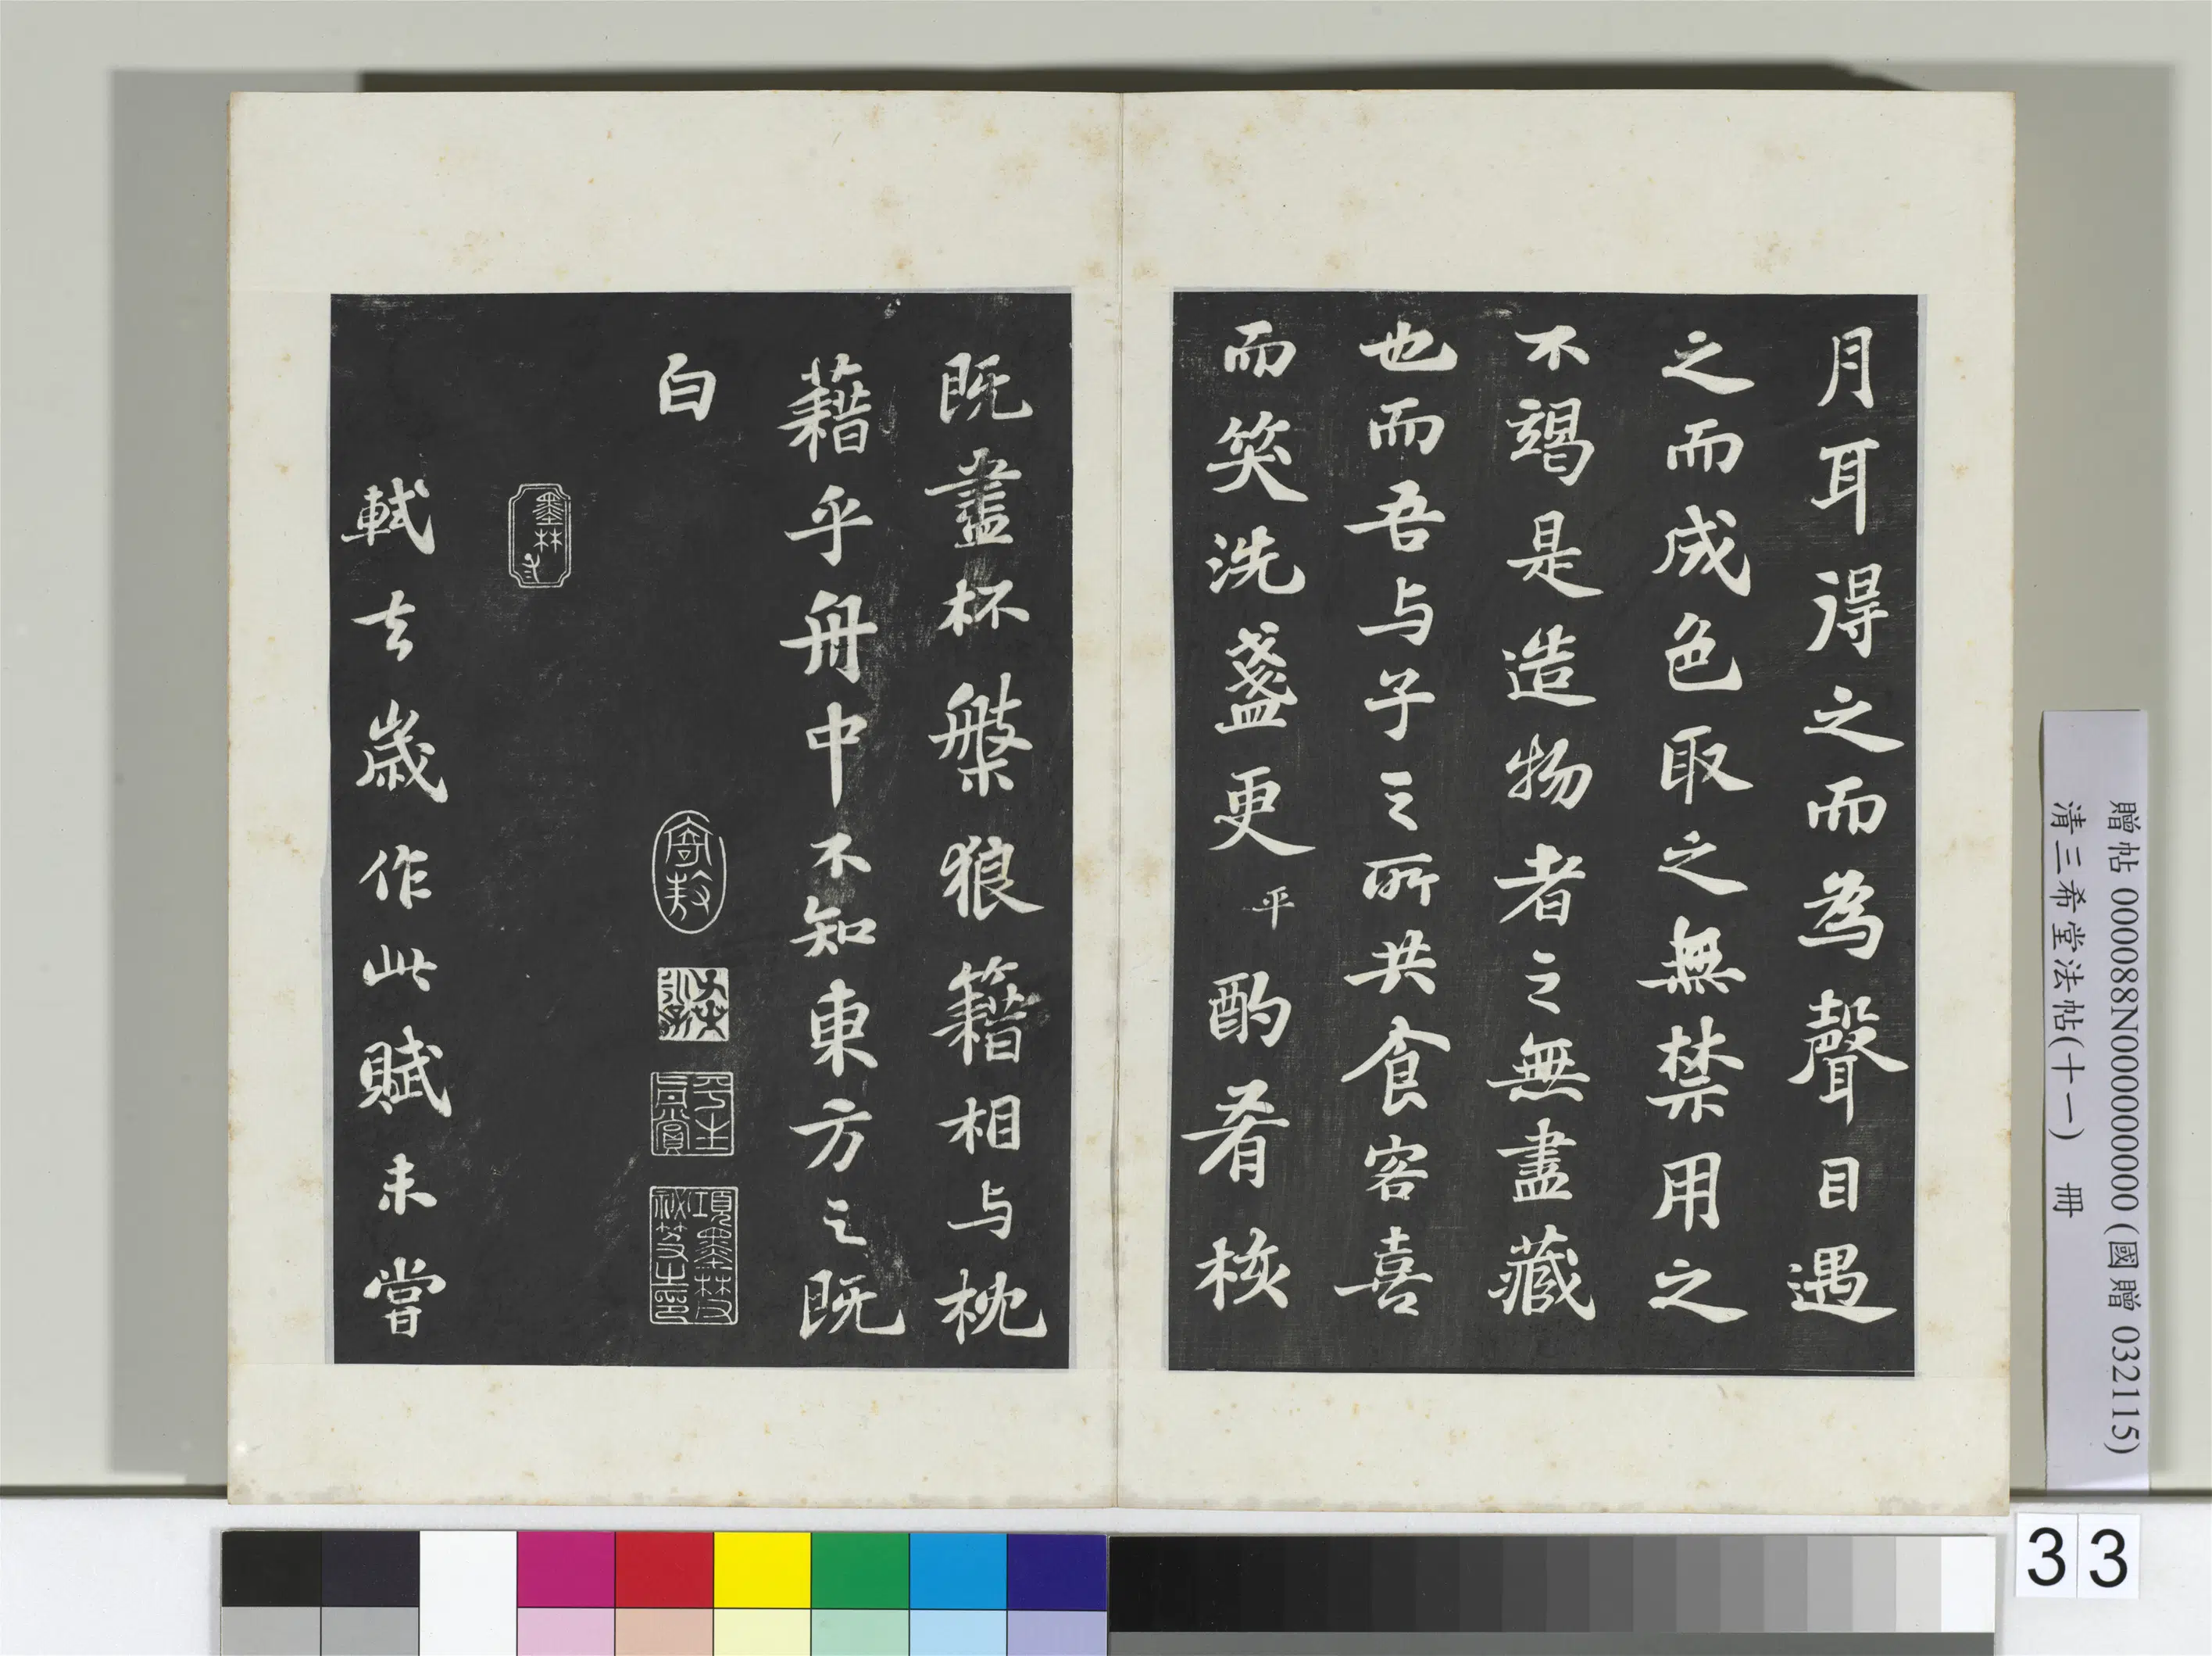 月耳得之而為聲目遇
之而成色取之無禁用之
不竭是造物者之無盡藏
也而吾与子之所共食客喜
而笑洗盞更平酌肴核
既盡杯槃狼籍相与枕
藉乎舟中不知東方之既
白
寄敖
平生真賞
項墨林父秘笈之印
墨林子
軾去歲作此賦未嘗
贈帖 000088N000000000 (國贈 032115)
清三希堂法帖(十一) 冊
33